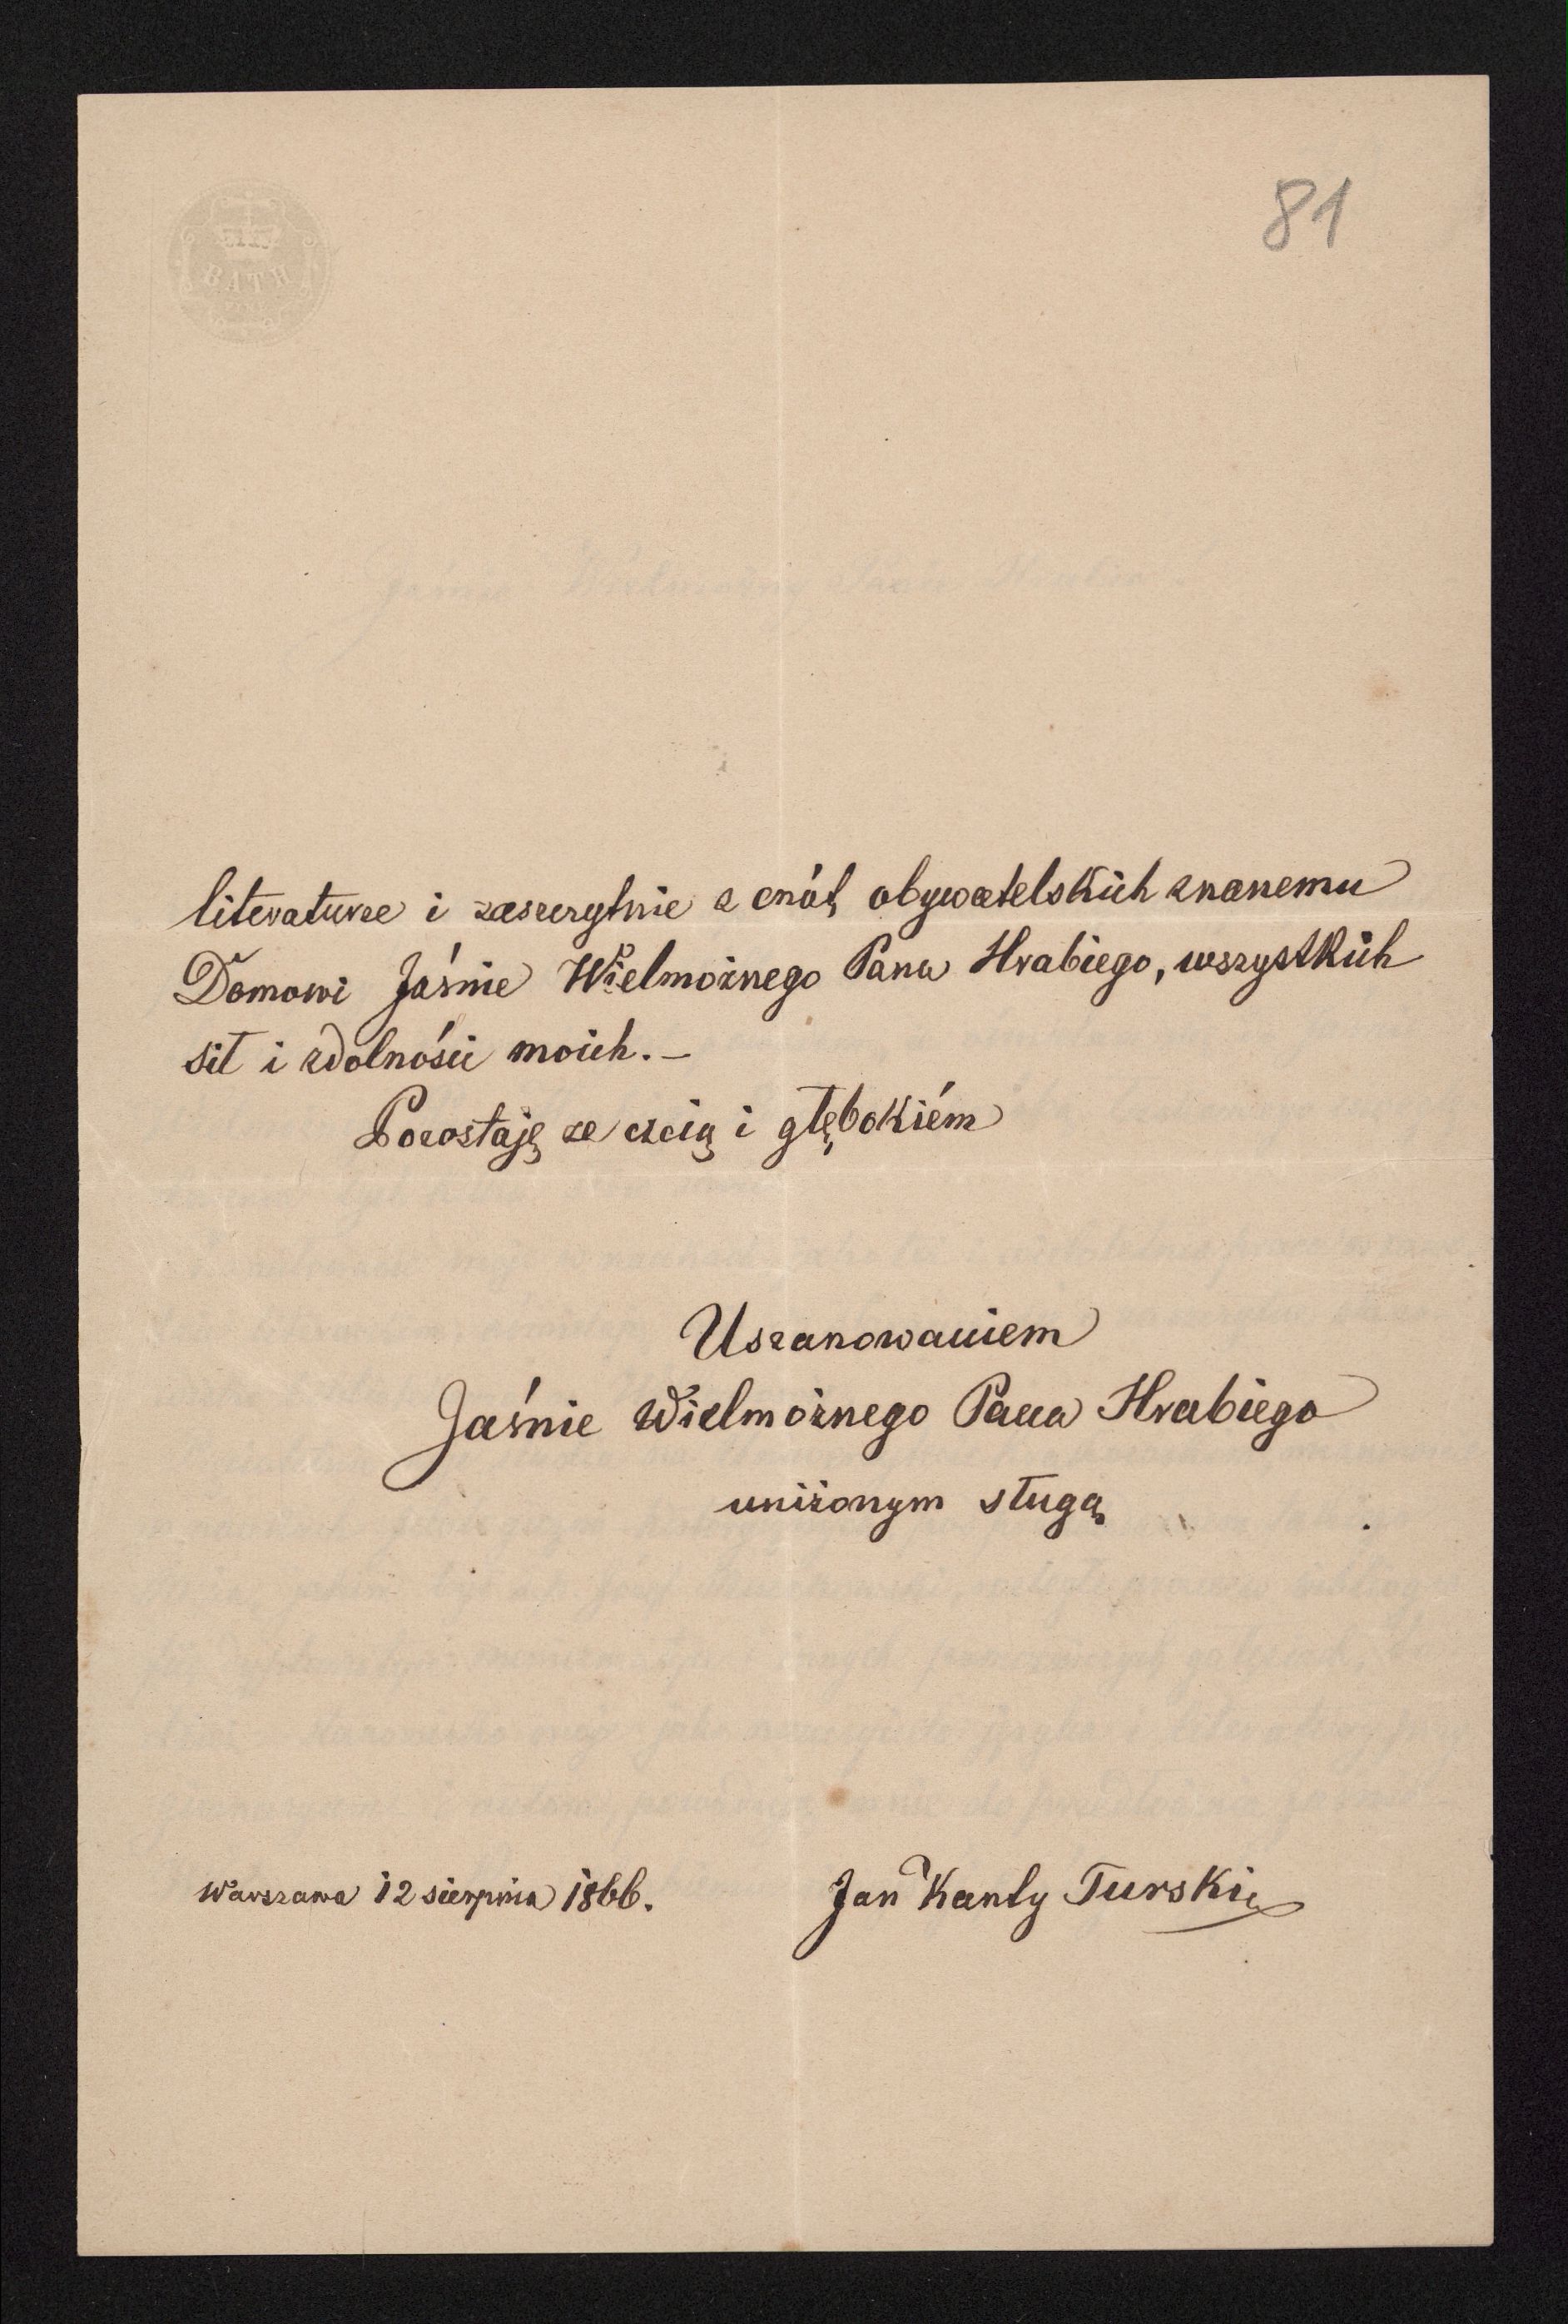 81
BATH
literaturze i zaszczytnie z cnót obywatelskich znanemu
Domowi Jaśnie Wielmożnego Pana Hrabiego, wszystkich
sił i zdolności moich. –
Pozostaję ze czcią i głębokiém
Uszanowaniem
Jaśnie Wielmożnego Pana Hrabiego
uniżonym sługą
Warszawa 12 sierpnia 1866.
Jan Kanty Turski